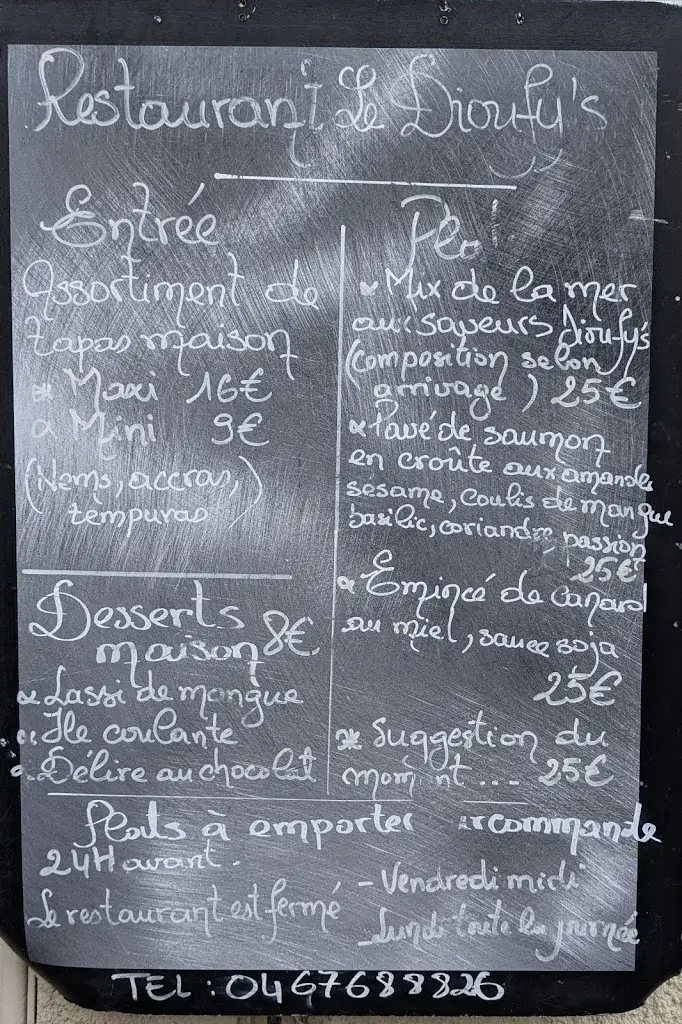 Restaurant Le Dioufy's
Entrée
Assortiment de
tapas maison
* Maxi 16€
* Mini 9€
(Nems, accras,
tempuras)
Desserts
maison 8€
* Lassi de mangue
* Ile coulante
* Délire au chocolat
* Mix de la mer
aux saveurs Dioufy's
(composition selon
arrivage) 25€
* Pavé de saumon
en croûte aux amandes
sesame, coulis de mangue
basilic, coriandre, passion
25€
* Emincé de canard
au miel, sauce soja
25€
* Suggestion du
moment ... 25€
Plats à emporter
24H avant.
Le restaurant est fermé
- Vendredi midi
- Lundi toute la journée
TEL : 0467688826